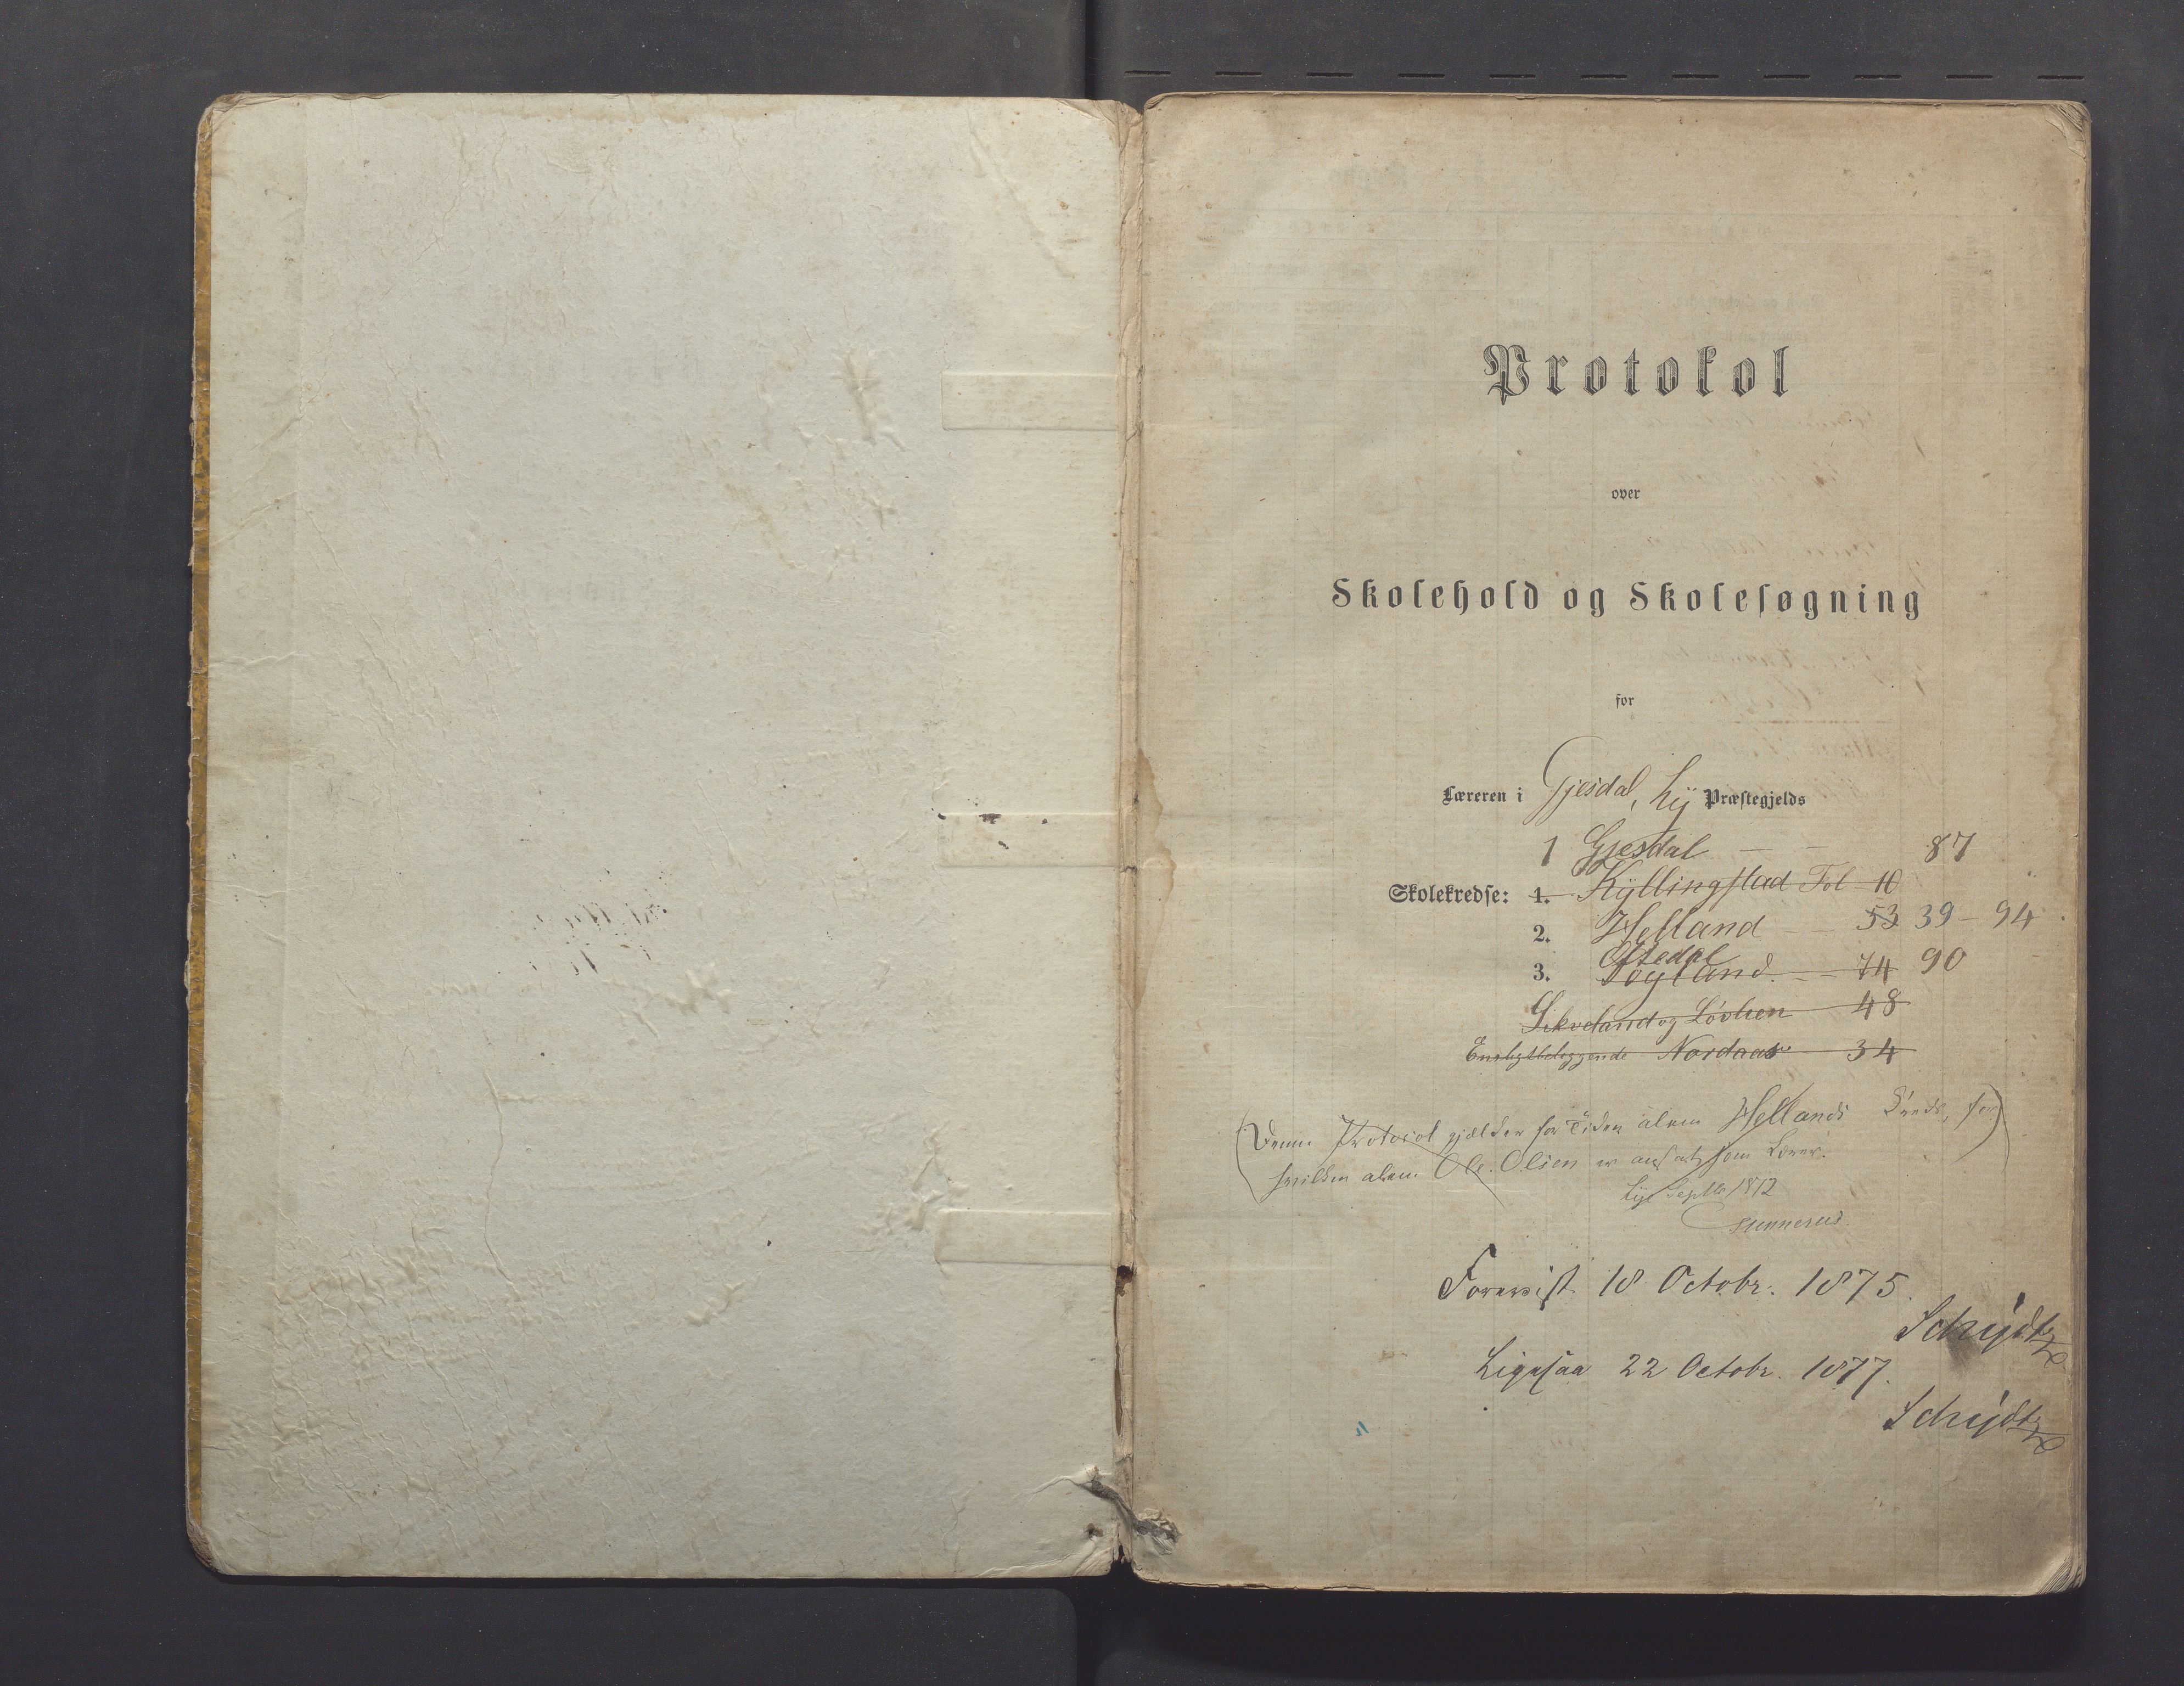 Protokol
over
Skolehold og Skolesøgning
for
Læreren i Gjesdal, Lÿ Præstegjelds
1 Gjesdal — — 87
Skolekredse: 1. Kÿllingstad Fol 10
2. Helland — — 53 39 – 94
Oftedal
3. Søyland. — 74 90
Sikveland og Løvbren 48
Ensligtbeliggende Nordaas 34
(Denne Protocol gjælder for Tiden alene Hellands Kreds, for
hvilken alene Ole Olsen er ansat som Lærer.)
Lÿe Septbr 1872
Forevist 18 Octobr. 1875.
Schiÿdtz
Ligesaa 22 Octobr. 1877.
Schiÿdtz